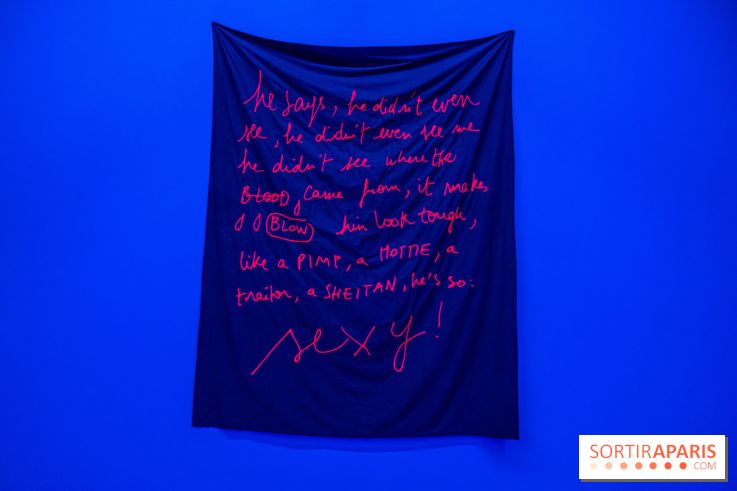 he says, he didn't even
see, he didn't even see me
he didn't see where the
BLOOD, came from, it makes
BLOW him look tough,
like a PIMP, a HOTTIE, a
traitor, a SHEITAN, he's so:
sexy!
SORTIRAPARIS
.COM